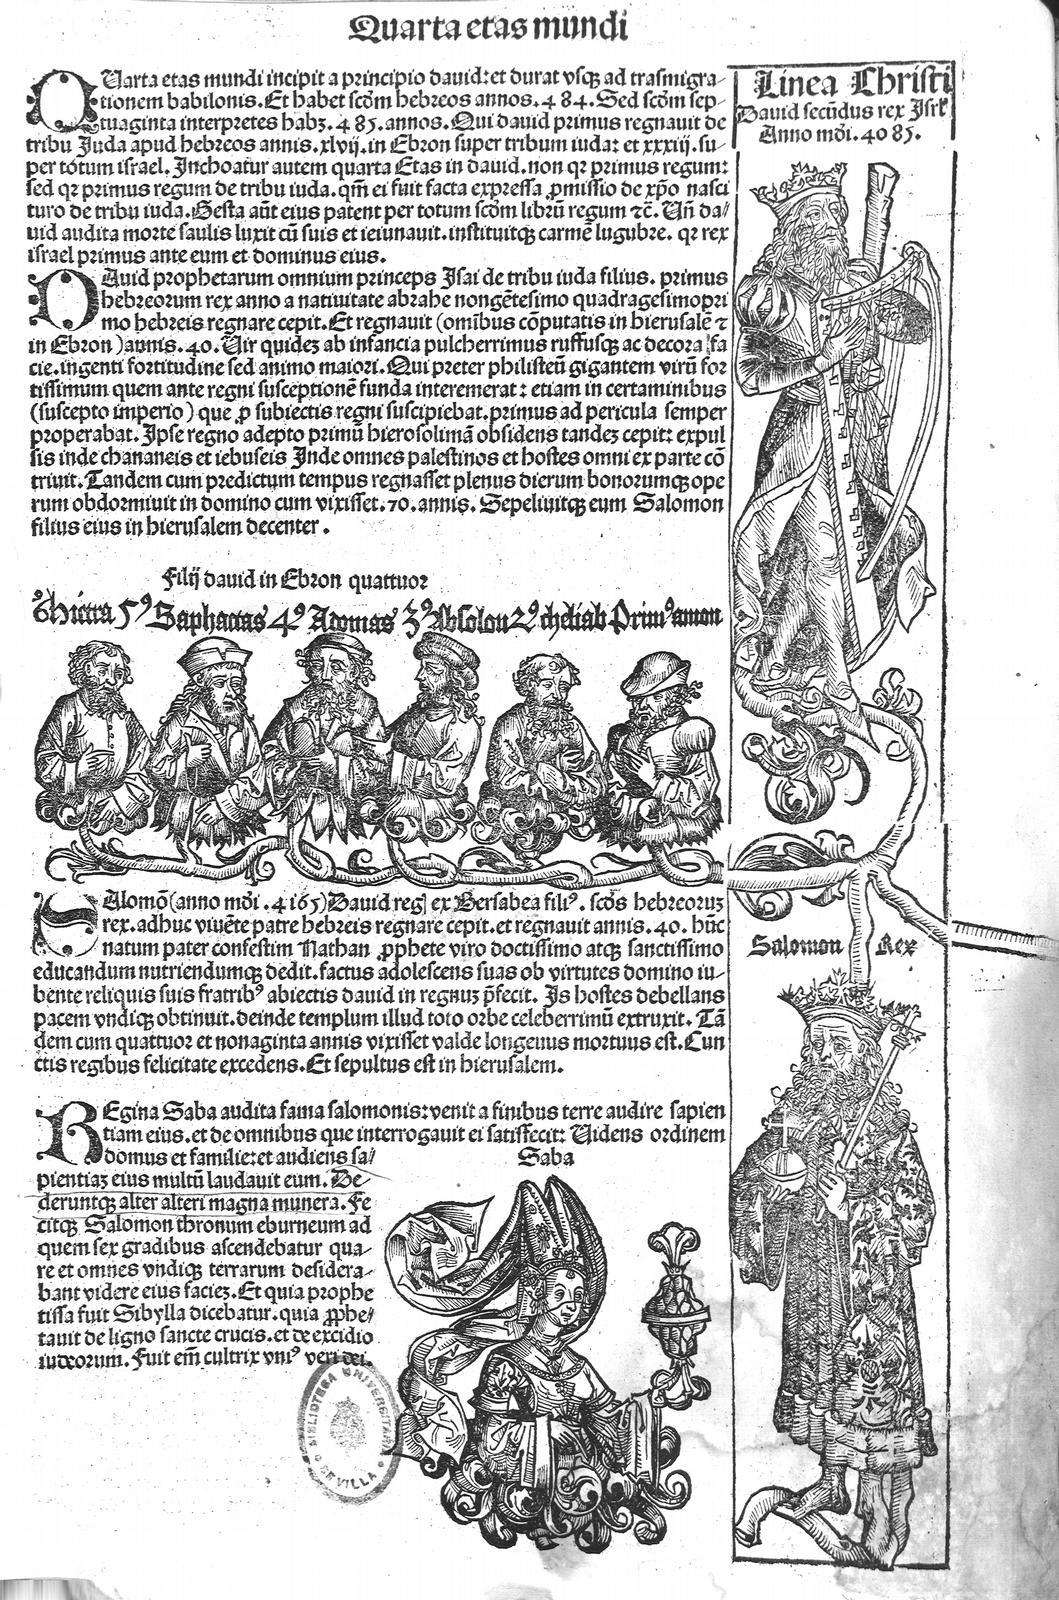 Quarta etas mundi
QUarta etas mundi incipit a principio dauid: et durat vsqꝫ ad trasmigra-
tionem babilonis. Et habet scḋm hebreos annos. 484. Sed scḋm sep-
tuaginta interpretes habꝫ. 485. annos. Qui dauid primus regnauit de
tribu Juda apud hebreos annis. xlvij. in Ebron super tribum iuda: et xxxiij. su-
per totum israel. Inchoatur autem quarta Etas in dauid. non qꝛ primus regum:
sed qꝛ primus regum de tribu iuda. qm̄ ei fuit facta expressa ꝓmissio de xp̄o nasci
turo de tribu iuda. Gesta aūt eius patent per totum scḋm librū regum ⁊c̄. Uñ da/
uid audita morte saulis luxit cū suis et ieiunauit. instituitqꝫ carmē lugubre. qꝛ rex
israel primus ante eum et dominus eius.
DAuid prophetarum omnium princeps Isai de tribu iuda filius. primus
hebreorum rex anno a natiuitate abrahe nongētesimo quadragesimopri
mo hebreis regnare cepit. Et regnauit (omībus cōputatis in hierusalē ⁊
in Ebron) annis. 40. Uir quideꝫ ab infancia pulcherrimus ruffusqꝫ ac decora fa
cie. ingenti fortitudine sed animo maiori. Qui preter philisteū gigantem virū for
tissimum quem ante regni susceptionē funda interemerat: etiam in certaminibus
(suscepto imperio) que ꝓ subiectis regni suscipiebat. primus ad pericula semper
properabat. Ipse regno adepto primū hierosolimā obsidens tandeꝫ cepit: expul
sis inde chananeis et iebuseis Inde omnes palestinos et hostes omni ex parte cō
triuit. Tandem cum predictum tempus regnasset plenus dierum bonorumqꝫ ope
rum obdormiuit in domino cum vixisset. 70. annis. Sepeliuitqꝫ eum Salomon
filius eius in hierusalem decenter.
Filij dauid in Ebron quattuor
5⁹ Saphacias 4⁹ Adonias 3⁹ Absolon 2⁹ cheliab Prim⁹ amon
SAlomō (anno mōi. 4165) Dauid reg] ex Bersabea fili⁹. scḋs hebreoruꝫ
rex. adhuc viuēte patre hebreis regnare cepit. et regnauit annis. 40. hūc
natum pater confestim Nathan ꝓphete viro doctissimo atqꝫ sanctissimo
educandum nutriendumqꝫ dedit. factus adolescens suas ob virtutes domino iu-
bente reliquis suis fratrib⁹ abiectis dauid in regnuꝫ p̄fecit. Is hostes debellans
pacem vndiqꝫ obtinuit. deinde templum illud toto orbe celeberrimū extruxit. Tā
dem cum quattuor et nonaginta annis vixisset valde longeuus mortuus est. Cun
ctis regibus felicitate excedens. Et sepultus est in hierusalem.
REgina Saba audita fama salomonis: venit a finibus terre audire sapien
tiam eius. et de omnibus que interrogauit ei satisfecit: Uidens ordinem
domus et familie: et audiens sa/
pientiaꝫ eius multū laudauit eum. De
deruntqꝫ alter alteri magna munera. Fe
citqꝫ Salomon thronum eburneum ad
quem sex gradibus ascendebatur qua-
re et omnes vndiqꝫ terrarum desidera-
bant videre eius facieꝫ. Et quia prophe
tissa fuit Sibylla dicebatur. quia ꝓphe/
tauit de ligno sancte crucis. et de excidio
iudeorum. Fuit em̄ cultrix vni⁹ veri dei.
Saba
BIBLIOTECA UNIVERSITARIA
DE SEVILLA
Linea Christi
Dauid secūdus rex Isrł
Anno mōi. 4085.
Salomon Rex